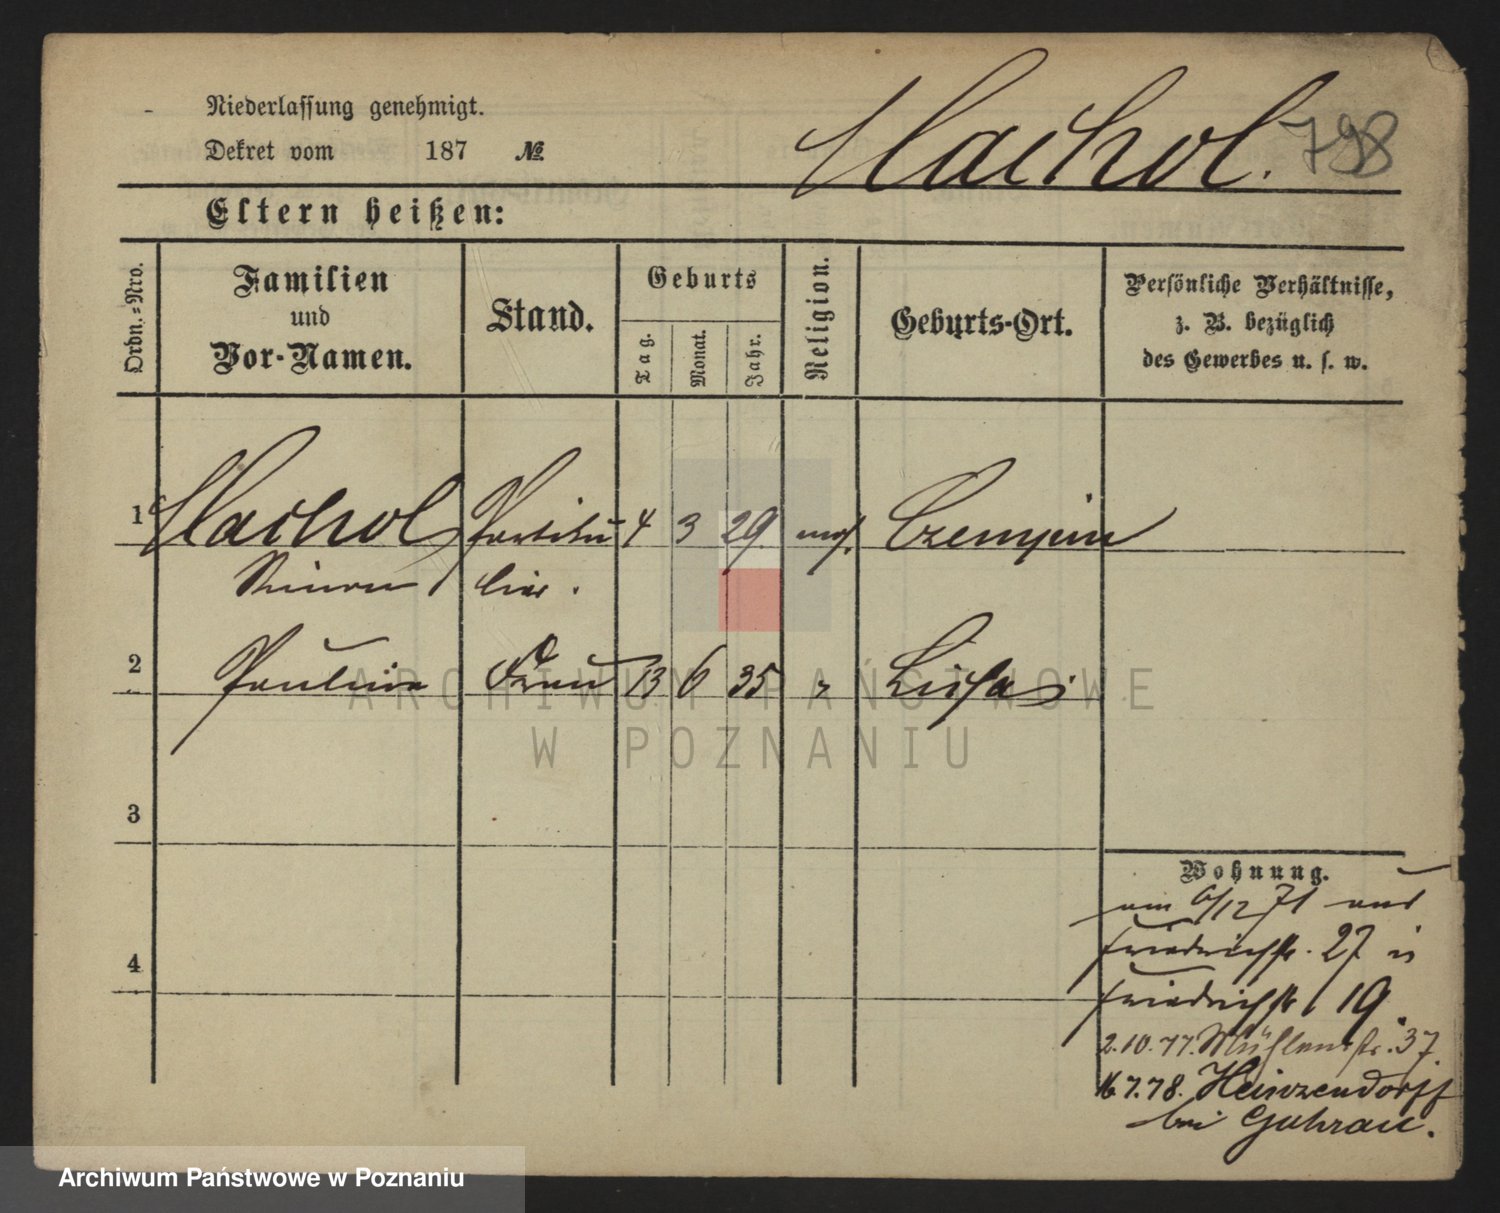 Niederlassung genehmigt.
Dekret vom 187 №
Machol. 798
Eltern heißen:
Ordn.-Nro.
Familien
und
Vor-Namen.
Stand.
Geburts
Tag.
Monat.
Jahr.
Religion.
Geburts-Ort.
Persönliche Verhältnisse,
z. B. bezüglich
des Gewerbes u. s. w.
1 Machol Partiku 4 3 29. mos. Czempin
Simon lier.
2 Pauline Frau 13 6 35 " Lissa
3
4
Wohnung.
am 6/12 71 aus
Friedrichstr. 27 in
Friedrichstr 19.
2.10.77. Mühlenstr. 37.
16.7.78. Heinzendorff
bei Guhrau.
ARCHIWUM PAŃSTWOWE
W POZNANIU
Archiwum Państwowe w Poznaniu